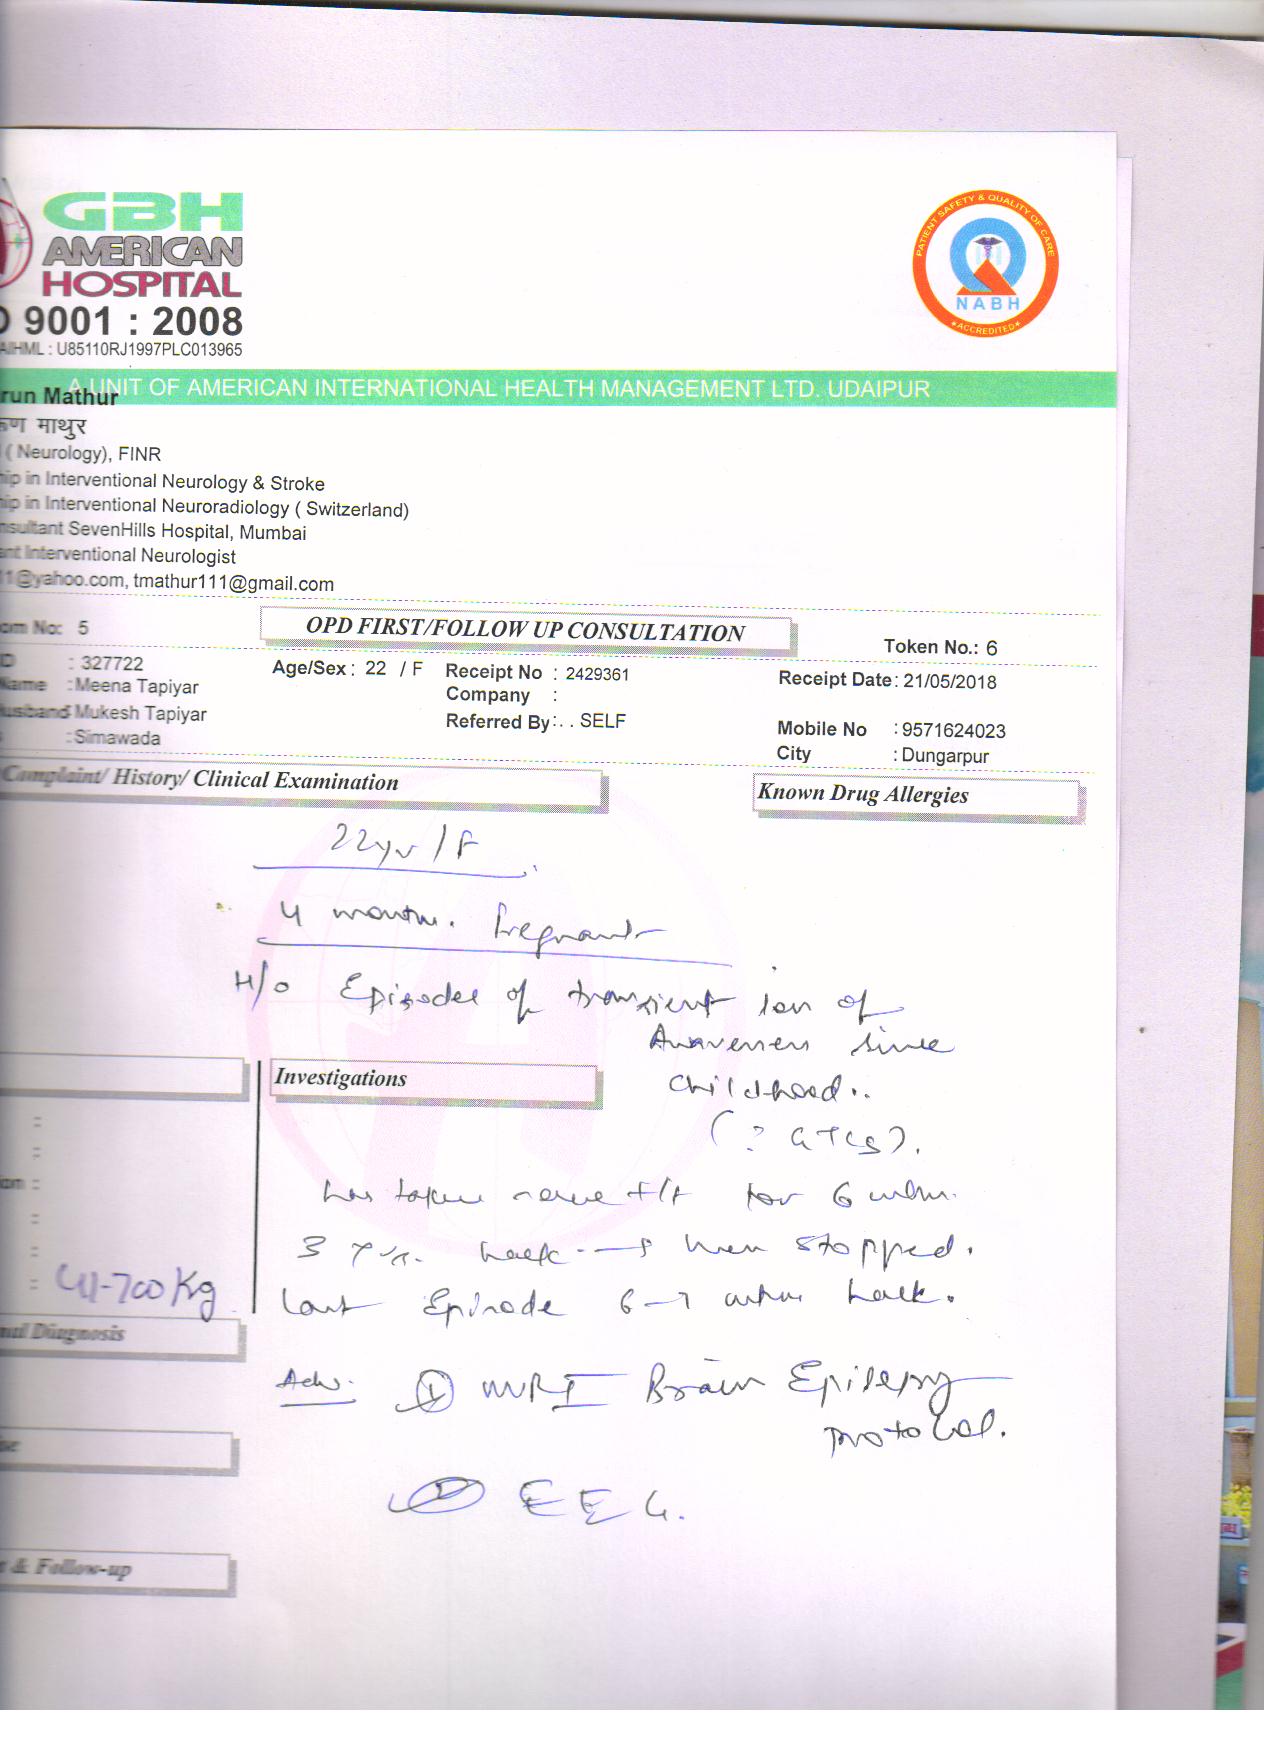 GBH
AMERICAN
HOSPITAL
9001 : 2008
AIHML : U85110RJ1997PLC013965
PATIENT SAFETY & QUALITY OF CARE
NABH
ACCREDITED
A UNIT OF AMERICAN INTERNATIONAL HEALTH MANAGEMENT LTD. UDAIPUR
run Mathur
रुण माथुर
( Neurology), FINR
hip in Interventional Neurology & Stroke
hip in Interventional Neuroradiology ( Switzerland)
nsultant SevenHills Hospital, Mumbai
ant Interventional Neurologist
11@yahoo.com, tmathur111@gmail.com
om No: 5
OPD FIRST/FOLLOW UP CONSULTATION
Token No.: 6
D : 327722 Age/Sex : 22 / F Receipt No : 2429361 Receipt Date: 21/05/2018
Name : Meena Tapiyar Company :
Husband Mukesh Tapiyar Referred By: . . SELF Mobile No : 9571624023
: Simawada City : Dungarpur
Complaint/ History/ Clinical Examination
Known Drug Allergies
22yr / F
4 months. Pregnant
H/o Episodes of transient loss of
Awareness since
childhood..
(? GTCS).
has taken some t/t for 6 mths.
3 yrs. back --→ then stopped.
Last Episode 6-7 mths back.
Investigations
on :
41-700 Kg
nal Diagnosis
Adv. ① MRI Brain Epilepsy
protocol.
② EEG.
t & Follow-up